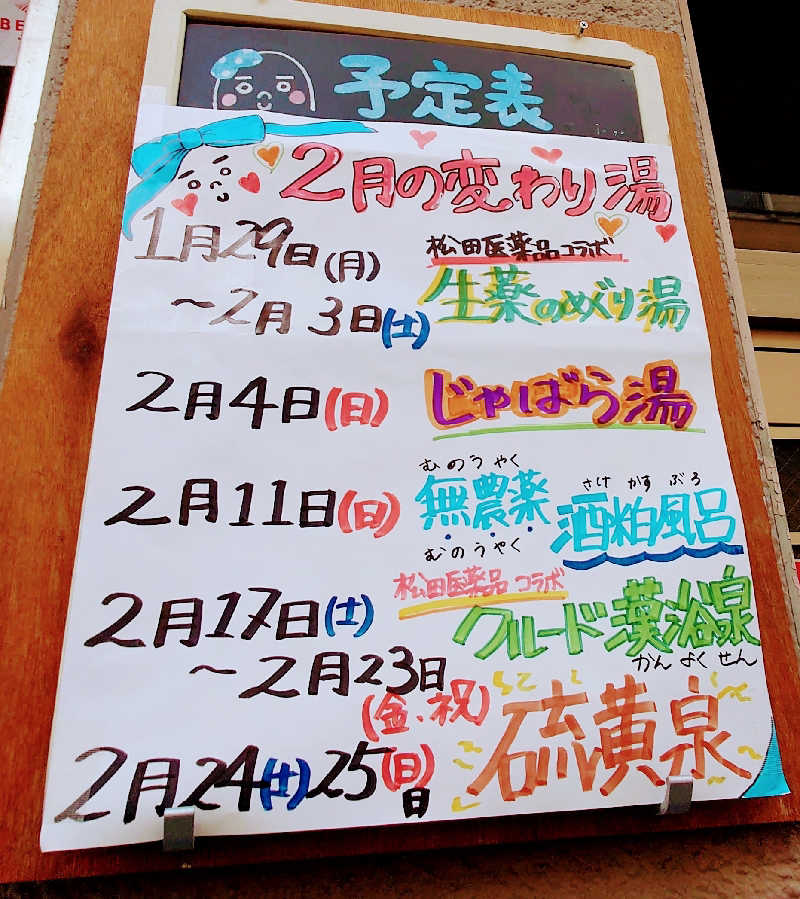 予定表
2月の変わり湯
1月29日(月)
〜2月3日(土)
松田医薬品コラボ
生薬のめぐり湯
2月4日(日)
じゃばら湯
2月11日(日)
むのうやく
無農薬
むのうやく
さけかすぶろ
酒粕風呂
2月17日(土)
〜2月23日
(金、祝)
松田医薬品コラボ
クルード漢浴泉
かんよくせん
2月24(土)25(日)日
硫黄泉